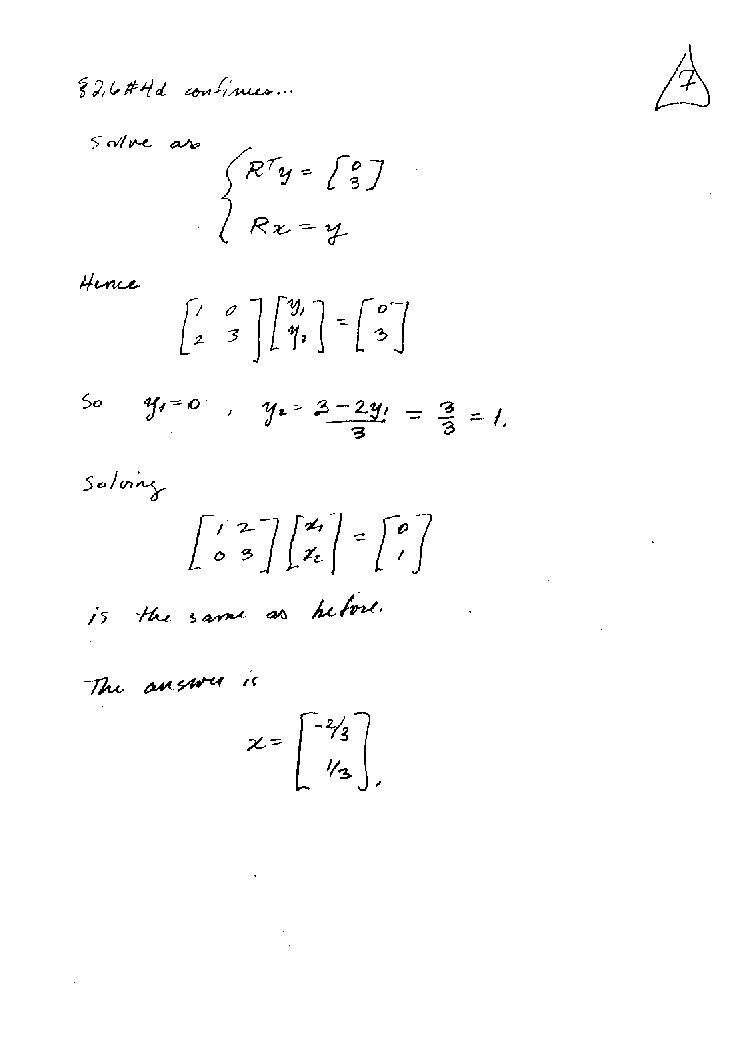 §2.6#4d continues...
7
Solve as
{ Rᵀy = [0 3]
{ Rx = y
Hence
[1 0; 2 3] [y₁ y₂] = [0 3]
So y₁=0 , y₂ = (3-2y₁)/3 = 3/3 = 1.
Solving
[1 2; 0 3] [x₁ x₂] = [0 1]
is the same as before.
The answer is
x = [-2/3 1/3].